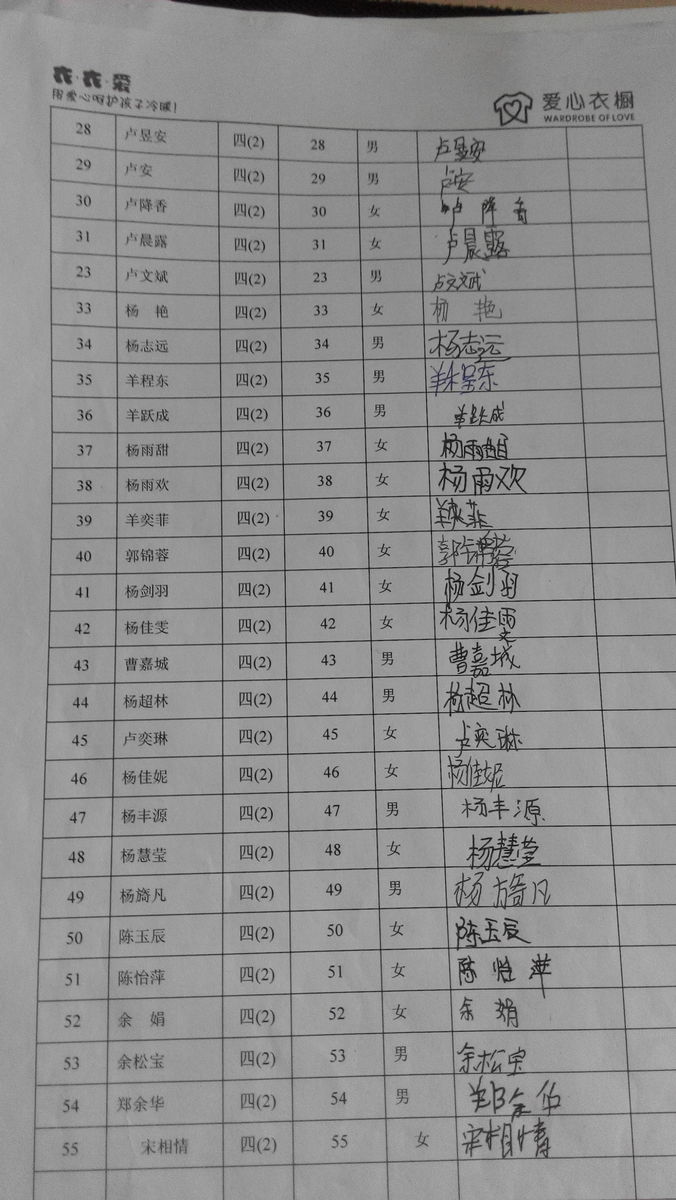 衣·衣·爱
用爱心呵护孩子冷暖!
爱心衣橱
WARDROBE OF LOVE
28 卢昱安 四(2) 28 男 卢昱安
29 卢安 四(2) 29 男 卢安
30 卢降香 四(2) 30 女 卢降香
31 卢晨露 四(2) 31 女 卢晨露
23 卢文斌 四(2) 23 男 卢文斌
33 杨 艳 四(2) 33 女 杨 艳
34 杨志远 四(2) 34 男 杨志远
35 羊程东 四(2) 35 男 羊程东
36 羊跃成 四(2) 36 男 羊跃成
37 杨雨甜 四(2) 37 女 杨雨甜
38 杨雨欢 四(2) 38 女 杨雨欢
39 羊奕菲 四(2) 39 女 羊奕菲
40 郭锦蓉 四(2) 40 女 郭锦蓉
41 杨剑羽 四(2) 41 女 杨剑羽
42 杨佳雯 四(2) 42 女 杨佳雯
43 曹嘉城 四(2) 43 男 曹嘉城
44 杨超林 四(2) 44 男 杨超林
45 卢奕琳 四(2) 45 女 卢奕琳
46 杨佳妮 四(2) 46 女 杨佳妮
47 杨丰源 四(2) 47 男 杨丰源
48 杨慧莹 四(2) 48 女 杨慧莹
49 杨旖凡 四(2) 49 男 杨旖凡
50 陈玉辰 四(2) 50 女 陈玉辰
51 陈怡萍 四(2) 51 女 陈怡萍
52 余 娟 四(2) 52 女 余 娟
53 余松宝 四(2) 53 男 余松宝
54 郑余华 四(2) 54 男 郑余华
55 宋相情 四(2) 55 女 宋相情